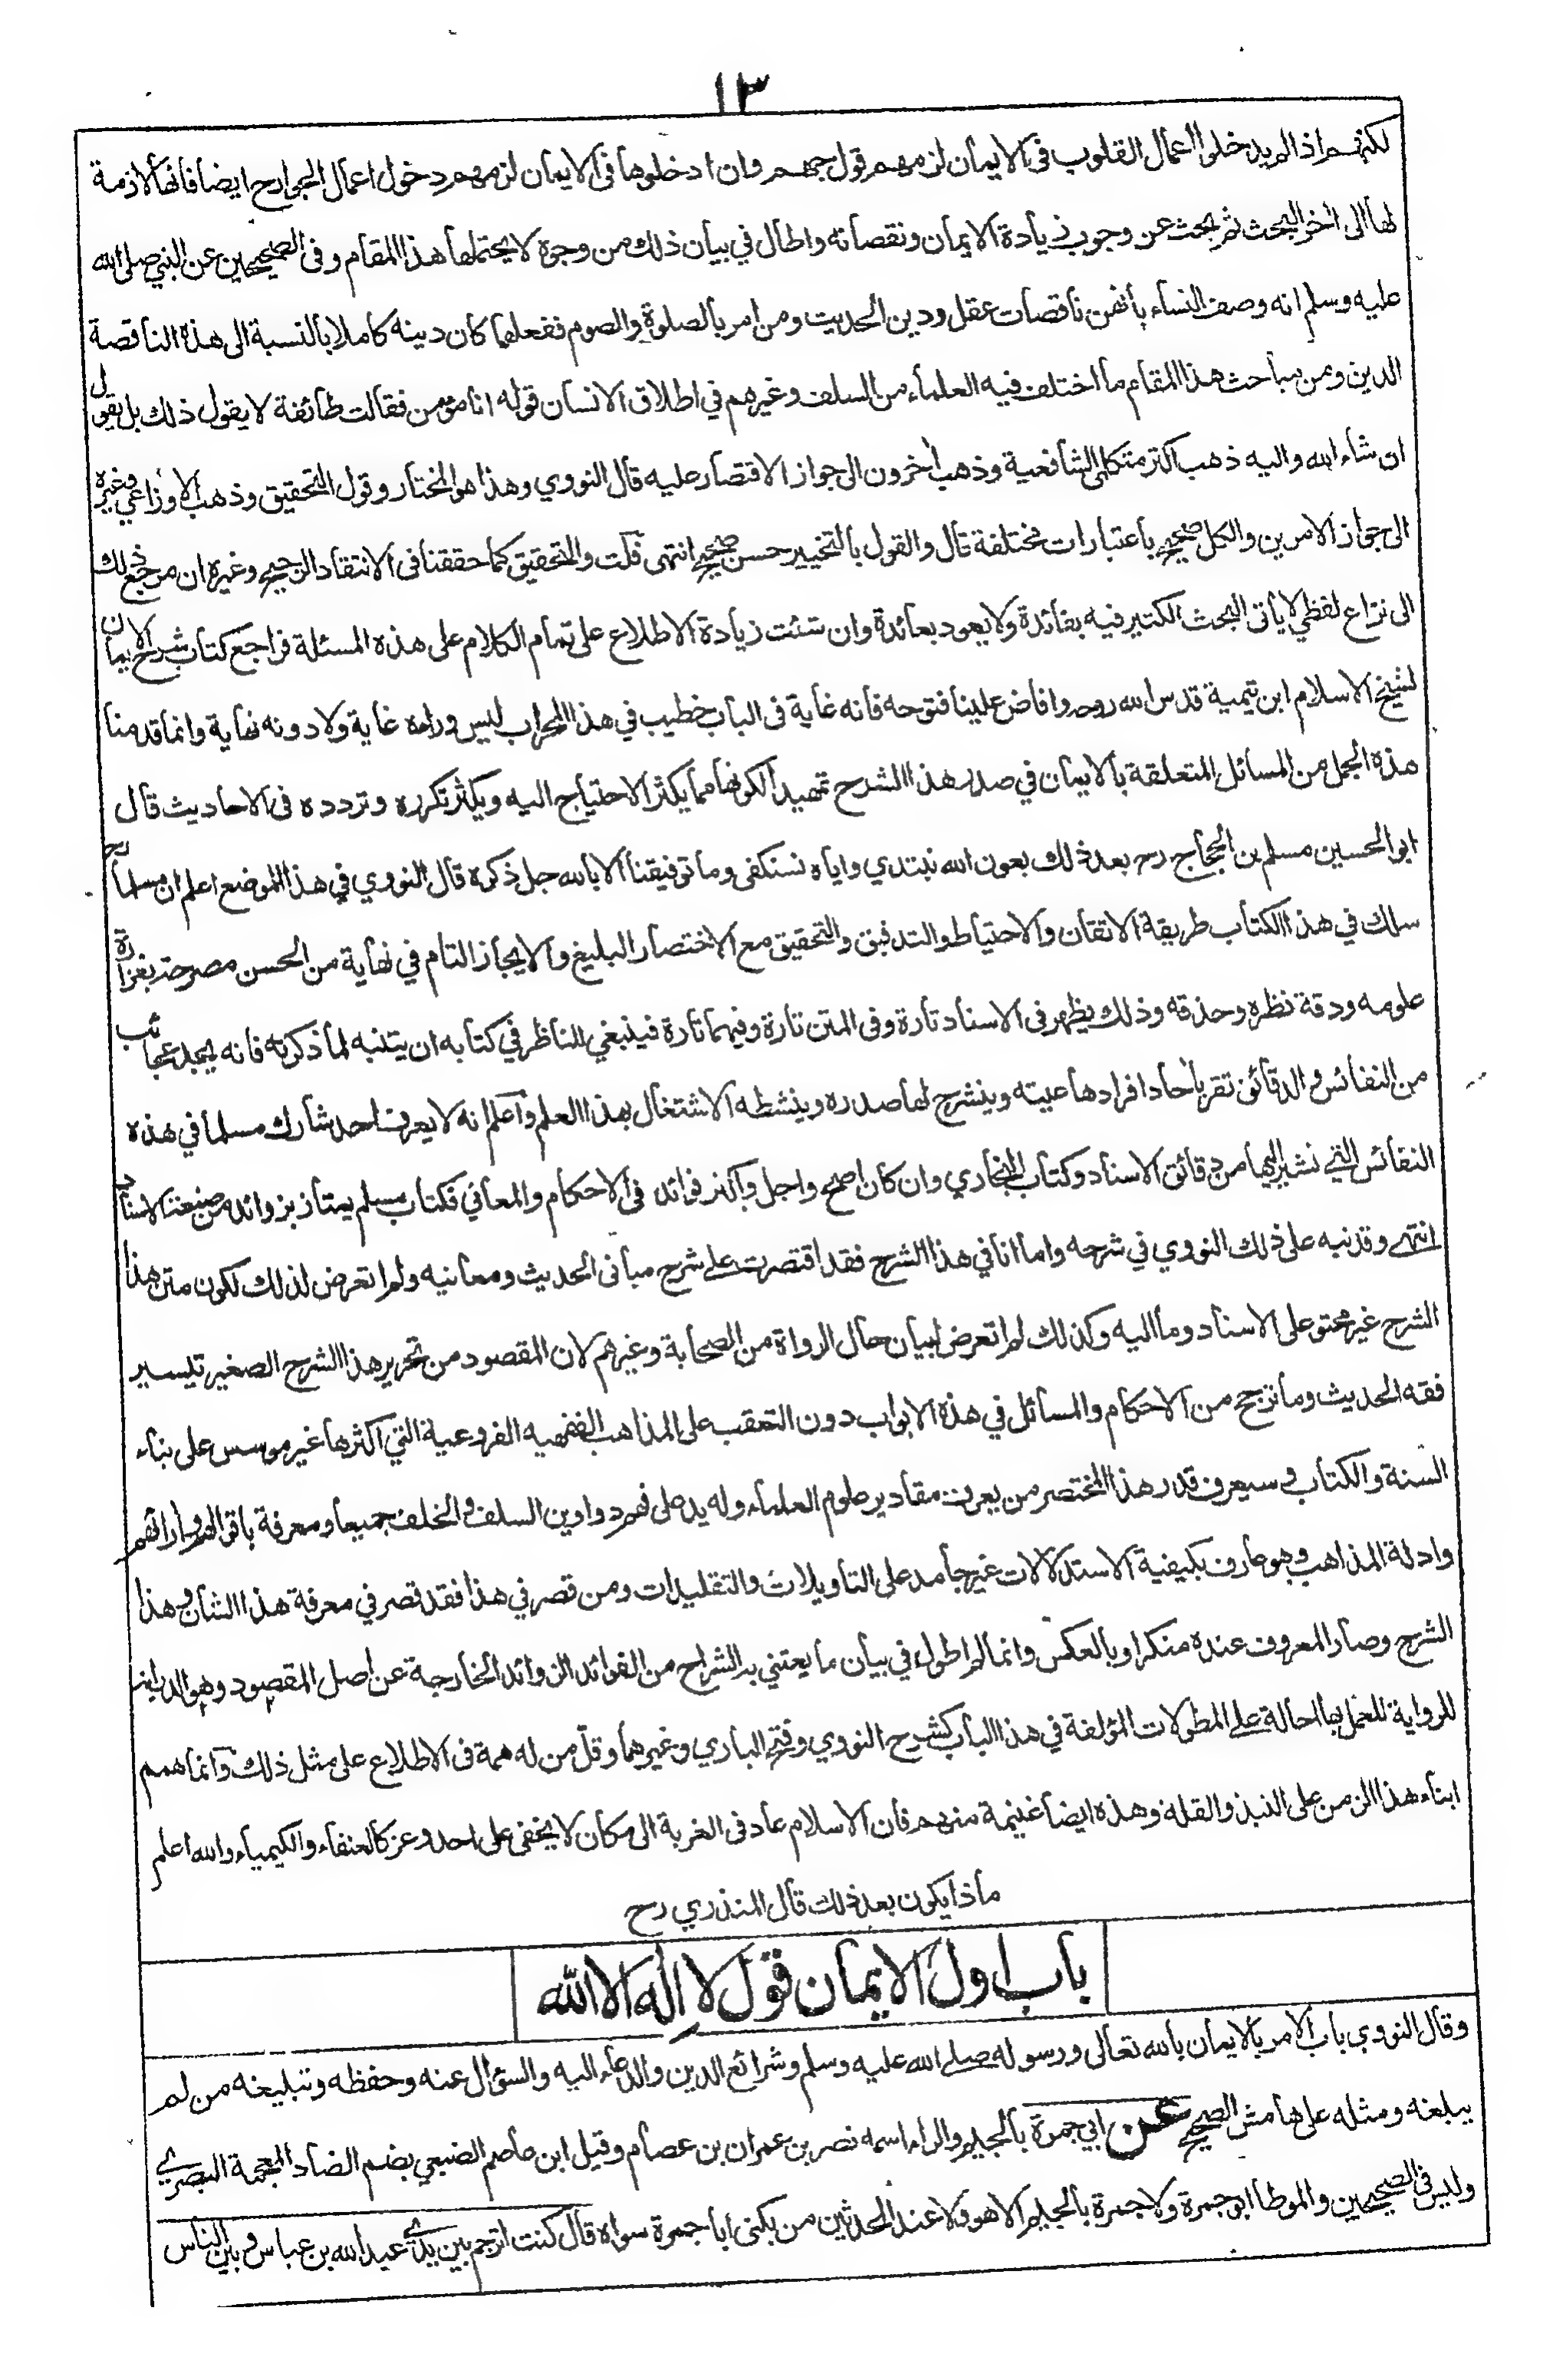 ١٣
لكنهم اذا لم يدخلوا اعمال القلوب في الايمان لزمهم قول جهم وان ادخلوها في الايمان لزمهم دخول اعمال الجوارح ايضا فانها لازمة
لها الى اخر البحث ثم بحث عن وجوب زيادة الايمان ونقصانه واطال في بيان ذلك من وجوه لا يحتملها هذا المقام وفي الصحيحين عن النبي صلى الله
عليه وسلم انه وصف النساء بأنهن ناقصات عقل ودين الحديث ومن امر بالصلوة والصوم ففعلهما كان دينه كاملا بالنسبة الى هذه الناقصة
الدين ومن مباحث هذا المقام ما اختلف فيه العلماء من السلف وغيرهم في اطلاق الانسان قوله انا مؤمن فقالت طائفة لا يقول ذلك بل يقول
ان شاء الله واليه ذهب اكثر متكلمي الشافعية وذهب أخرون الى جواز الاقتصار عليه قال النووي وهذا هو المختار وقول التحقيق وذهب الاوزاعي وغيره
الى جواز الامرين والكل صحيح باعتبارات مختلفة قال والقول بالتخيير حسن صحيح انتهى قلت والتحقيق كما حققنا في الانتقاد الرجيح وغيره ان مرجع ذلك
الى نزاع لفظي لا يأتي البحث الكثير فيه بفائدة ولا يعود بعائدة وان شئت زيادة الاطلاع على تمام الكلام على هذه المسئلة فراجع كتاب شرح الايمان
لشيخ الاسلام ابن تيمية قدس الله روحه وافاض علينا فتوحه فانه غاية في الباب خطيب في هذا المحراب ليس وراءه غاية ولا دونه نهاية وانما قدمنا
هذه الجمل من المسائل المتعلقة بالايمان في صدر هذا الشرح تمهيدا لكونها مما يكثر الاحتياج اليه ويكثر تكرره وتردده في الاحاديث قال
ابو الحسين مسلم بن الحجاج رح بعد ذلك بعون الله نبتدي واياه نستكفي وما توفيقنا الا بالله جل ذكره قال النووي في هذا الموضع اعلم ان مسلما رح
سلك في هذا الكتاب طريقة الاتقان والاحتياط والتدقيق والتحقيق مع الاختصار البليغ والايجاز التام في نهاية من الحسن مصرحة بغزارة
علومه ودقة نظره وحذقه وذلك يظهر في الاسناد تارة وفي المتن تارة وفيهما تارة فينبغي للناظر في كتابه ان يتنبه لما ذكرته فانه يجد عجائب
من النفائس والدقائق تقر بأحاد افرادها عينه وينشرح لها صدره وينشطه الاشتغال بهذا العلم وأعلم انه لا يعرف احد شارك مسلما في هذه
النفائس التي نشير اليها من دقائق الاسناد وكتاب البخاري وان كان اصح واجل وأكثر فوائد في الاحكام والمعاني فكتاب مسلم يمتاز بزوائد من صنعة الاسناد
انتهى وقد نبه على ذلك النووي في شرحه واما انا في هذا الشرح فقد اقتصرت على شرح مباني الحديث ومعانيه ولم اتعرض لذلك لكون متن هذا
الشرح غير محتو على الاسناد وما اليه وكذلك لم اتعرض لبيان حال الرواة من الصحابة وغيرهم لان المقصود من تحرير هذا الشرح الصغير تيسير
فقه الحديث وما ترجح من الاحكام والمسائل في هذه الابواب دون التعقب على المذاهب الفقهيه الفروعية التي اكثرها غير موسس على بناء
السنة والكتاب وسيعرف قدر هذا المختصر من يعرف مقادير علوم العلماء وله يد على فهم دواوين السلف والخلف جميعا ومعرفة باقوالهم وارائهم
وادلة المذاهب وهو عارف بكيفية الاستدلالات غير جامد على التأويلات والتقليدات ومن قصر في هذا فقد قصر في معرفة هذا الشان وهذا
الشرح وصار المعروف عنده منكرا وبالعكس وانما لم اطول في بيان ما يعتني به الشراح من الفوائد الزوائد الخارجة عن اصل المقصود وهو الدراية
للرواية للعمل بها احالة على المطولات المؤلفة في هذا الباب كشرح النووي وفتح الباري وغيرهما وقل من له همة في الاطلاع على مثل ذلك وانما همم
ابناء هذا الزمن على النبذ والقلة وهذه ايضا غنيمة منهم فان الاسلام عاد في الغربة الى مكان لا يخفى على احد وعز كالعنقاء والكيمياء والله اعلم
ماذا يكون بعد ذلك قال المنذري رح
باب اول الايمان قول لا اله الا الله
وقال النووي باب الامر بالايمان بالله تعالى ورسوله صلى الله عليه وسلم وشرائع الدين والدعاء اليه والسؤال عنه وحفظه وتبليغه من لم
يبلغه ومثله على هامش الصحيح عن ابي جمرة بالجيم والراء اسمه نصر بن عمران بن عصام وقيل ابن عاصم الضبعي بضم الضاد المعجمة البصري
وليس في الصحيحين والموطأ ابو جمرة ولا جمرة بالجيم الا هو ولا عند المحدثين من يكنى ابا جمرة سواه قال كنت اترجم بين يدي عبد الله بن عباس وبين الناس